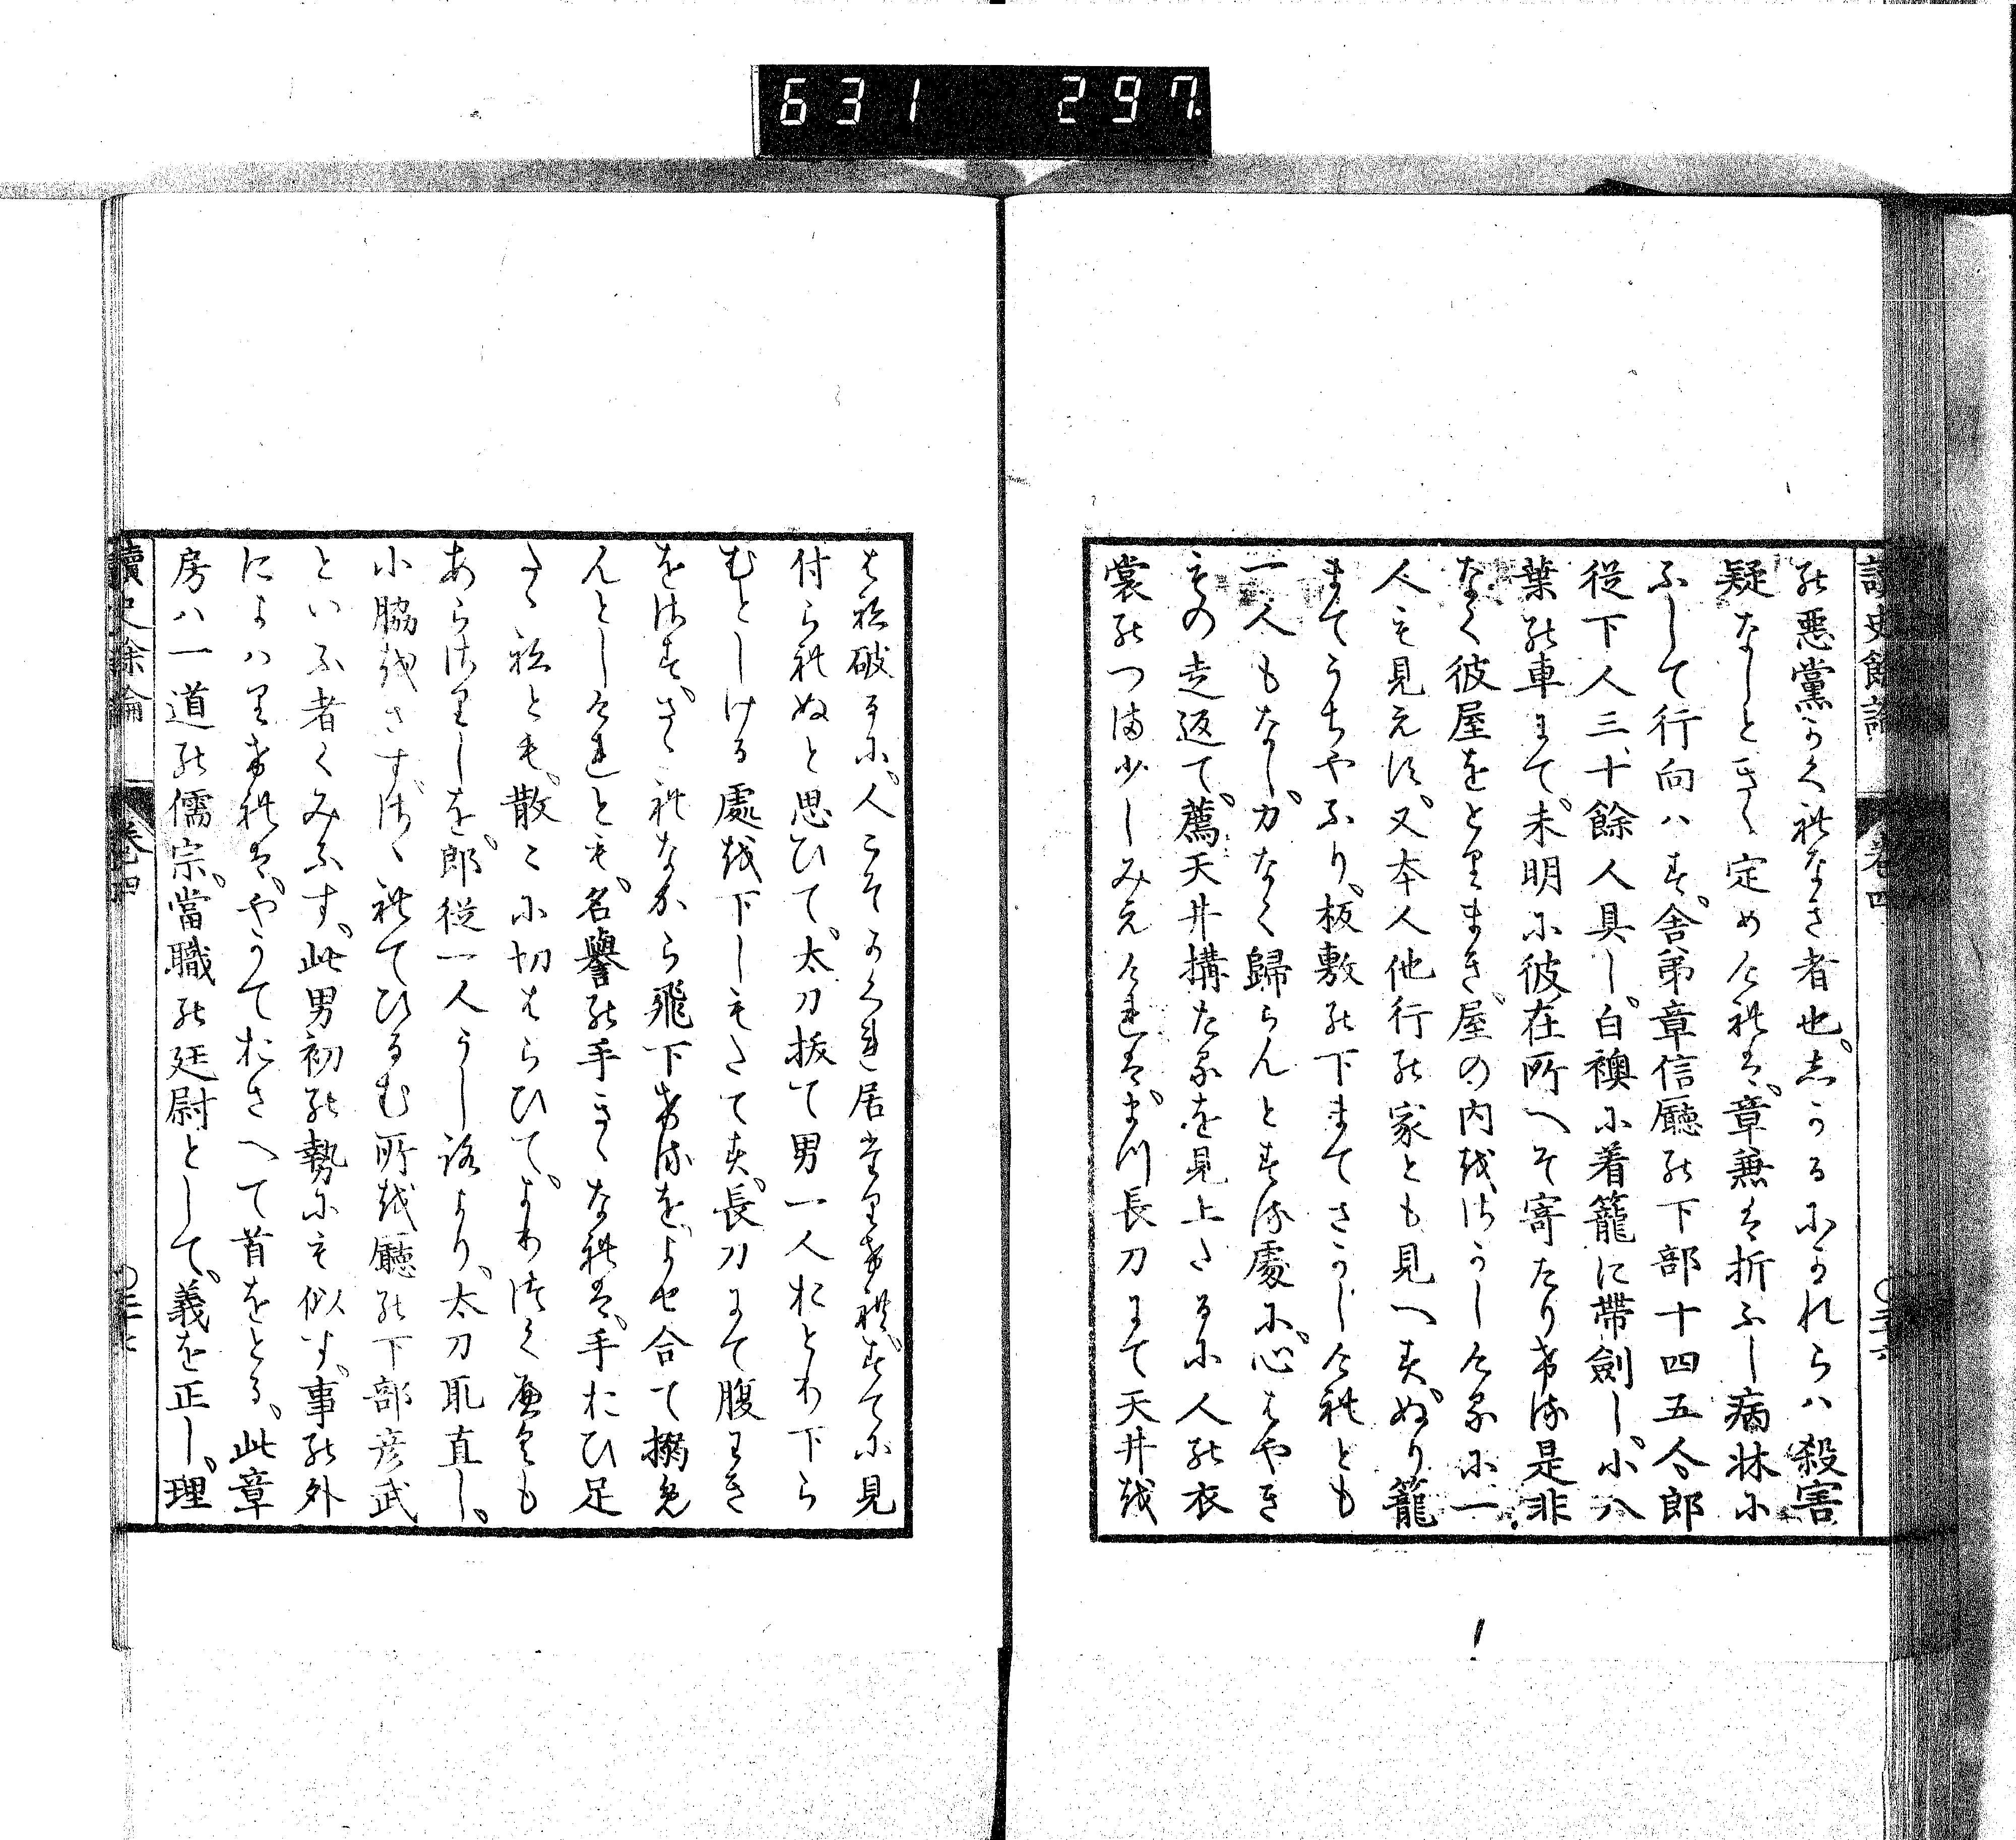 631 297
讀史餘論 卷四
の悪黨かくれなき者也。志かるにかれらハ殺害
疑なしときゝ定めけれは、章兼は折ふし病牀に
ふして行向ハす、舎弟章信廳の下部十四五人、郎
従下人三十餘人具し、白襖に着籠に帶劍し、小八
葉の車にて、未明に彼在所へそ寄たりける是非
なく彼屋をとりまき、屋の内をさかしけるに一
人も見えす、又本人他行の家とも見へす、ぬり籠
まてうちやふり、板敷の下まてさかしけれとも
一人もなし、力なく歸らんとする處に、心はやき
もの走返て、薦天井搆たるを見上たるに人の衣
裳のつま少しみえけれは、まつ長刀にて天井を
はね破るに、人こそかくれ居たりけれ、すてに見
付られぬと思ひて、太刀抜て男一人おとり下ら
むとしける處を下しもたてす、長刀にて腹わき
をさす、さゝれなから飛下けるを、よせ合て搦め
んとしけれとも、名譽の手きゝなれは、手おひ足
たゝねとも、散々に切はらひて、よわけく無も
あらさりしを、郎従一人うしろより、太刀取直し、
小脇をさす、さゝれてひるむ所を廳の下部彦武
といふ者くみふす、此男初の勢にも似す、事の外
によハりけれは、やかておさへて首をとる、此章
房ハ一道の儒宗、當職の廷尉として、義を正し、理
讀史餘論 卷四